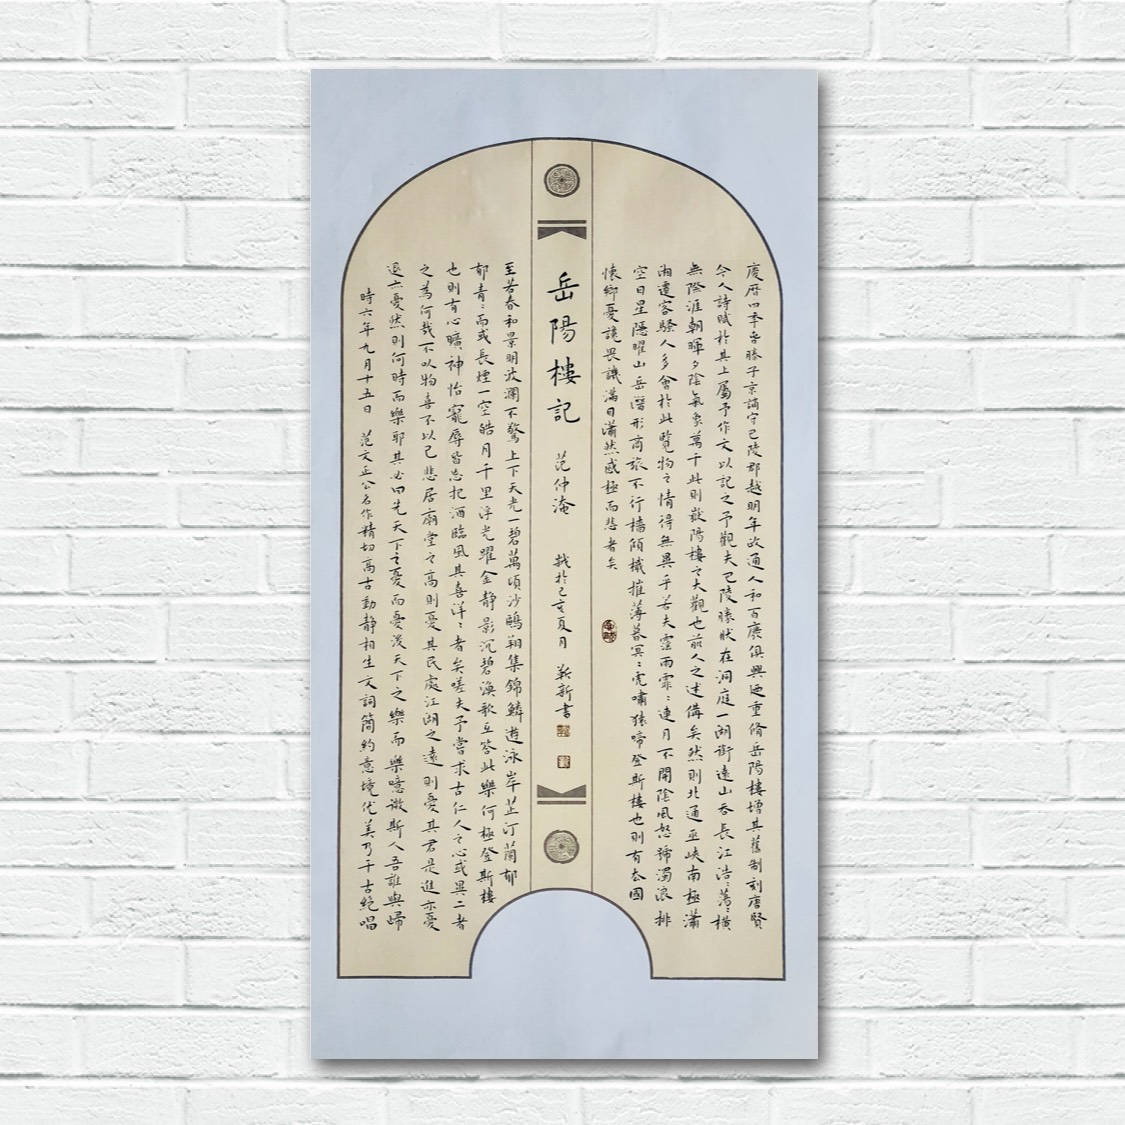 慶曆四年春滕子京謫守巴陵郡越明年政通人和百廢俱興迺重脩岳陽樓增其舊制刻唐賢
今人詩賦於其上屬予作文以記之予觀夫巴陵勝狀在洞庭一湖銜遠山吞長江浩〻蕩〻橫
無際涯朝暉夕陰氣象萬千此則嶽陽樓之大觀也前人之述備矣然則北通巫峽南極瀟
湘遷客騷人多會於此覽物之情得無異乎若夫霪雨霏〻連月不開陰風怒號濁浪排
空日星隱曜山岳潛形商旅不行檣傾檝摧薄暮冥〻虎嘯猿啼登斯樓也則有去國
懷鄉憂讒畏譏滿目蕭然感極而悲者矣
岳陽樓記 范仲淹 於己亥夏月 靳新書
至若春和景明波瀾不驚上下天光一碧萬頃沙鷗翔集錦鱗遊泳岸芷汀蘭郁
郁青〻而或長煙一空皓月千里浮光躍金靜影沉碧漁歌互答此樂何極登斯樓
也則有心曠神怡寵辱皆忘把酒臨風其喜洋〻者矣嗟夫予嘗求古仁人之心或異二者
之為何哉不以物喜不以己悲居廟堂之高則憂其民處江湖之遠則憂其君是進亦憂
退亦憂然則何時而樂耶其必曰先天下之憂而憂後天下之樂而樂噫微斯人吾誰與歸
時六年九月十五日 范文正公名作精切高古動靜相生文詞簡約意境優美乃千古絕唱